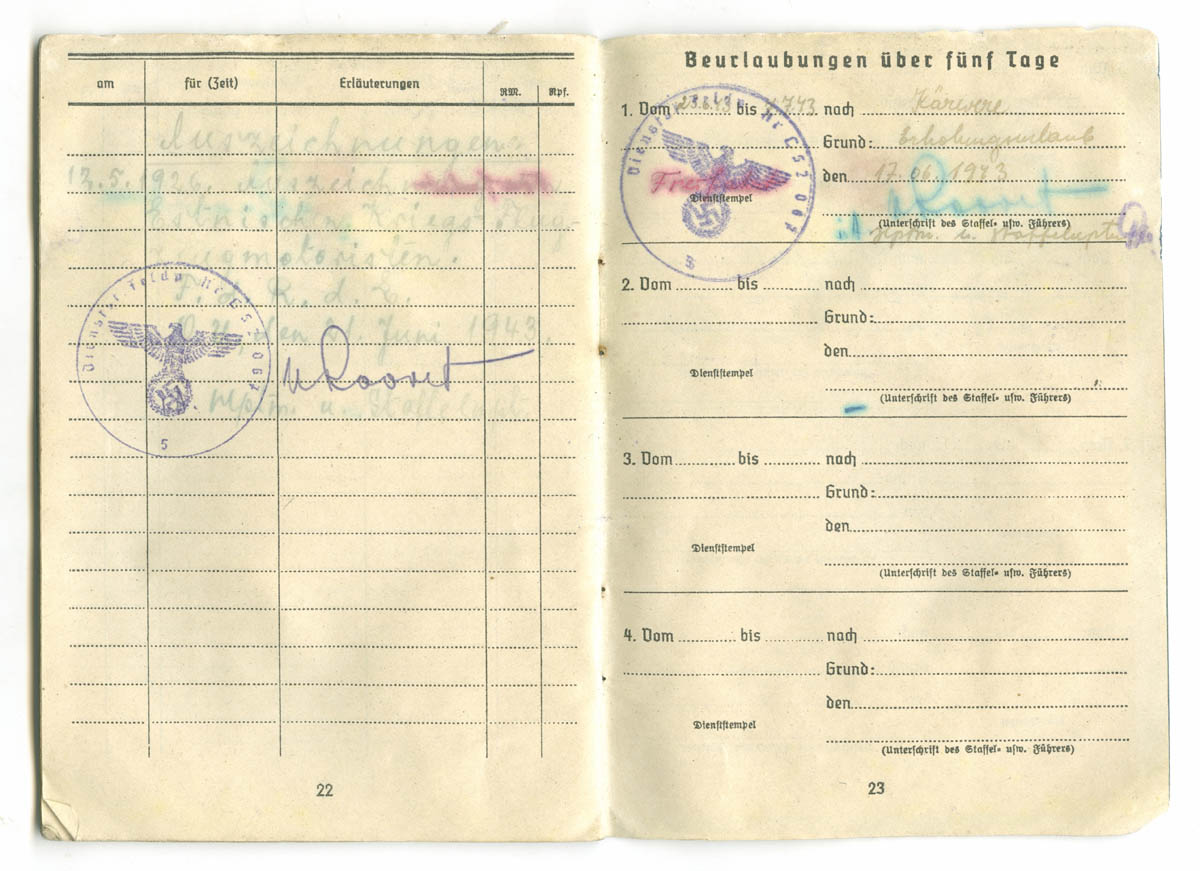 am für (Zeit) Erläuterungen RM. Rpf.
Auszeichnungen:
13.5.1926. Auszeich
Estnischen Kriegs-Flug-
zeugmotoristen.
F. d. R. d. E.
O.U., den Juni 1943.
Dienstst. Feldp. Nr
Hptm. u. Staffelkapt.
5
22
Beurlaubungen über fünf Tage
1. Vom 23.6.43 bis 7.43 nach Kärvere
Grund: Erholungsurlaub
den 17.06.1943
Dienstst. Feldp. Nr
Dienststempel
(Unterschrift des Staffel- usw. Führers)
Hptm. u. Staffelkapt.
2. Vom bis nach
Grund:
den
Dienststempel
(Unterschrift des Staffel- usw. Führers)
3. Vom bis nach
Grund:
den
Dienststempel
(Unterschrift des Staffel- usw. Führers)
4. Vom bis nach
Grund:
den
Dienststempel
(Unterschrift des Staffel- usw. Führers)
23